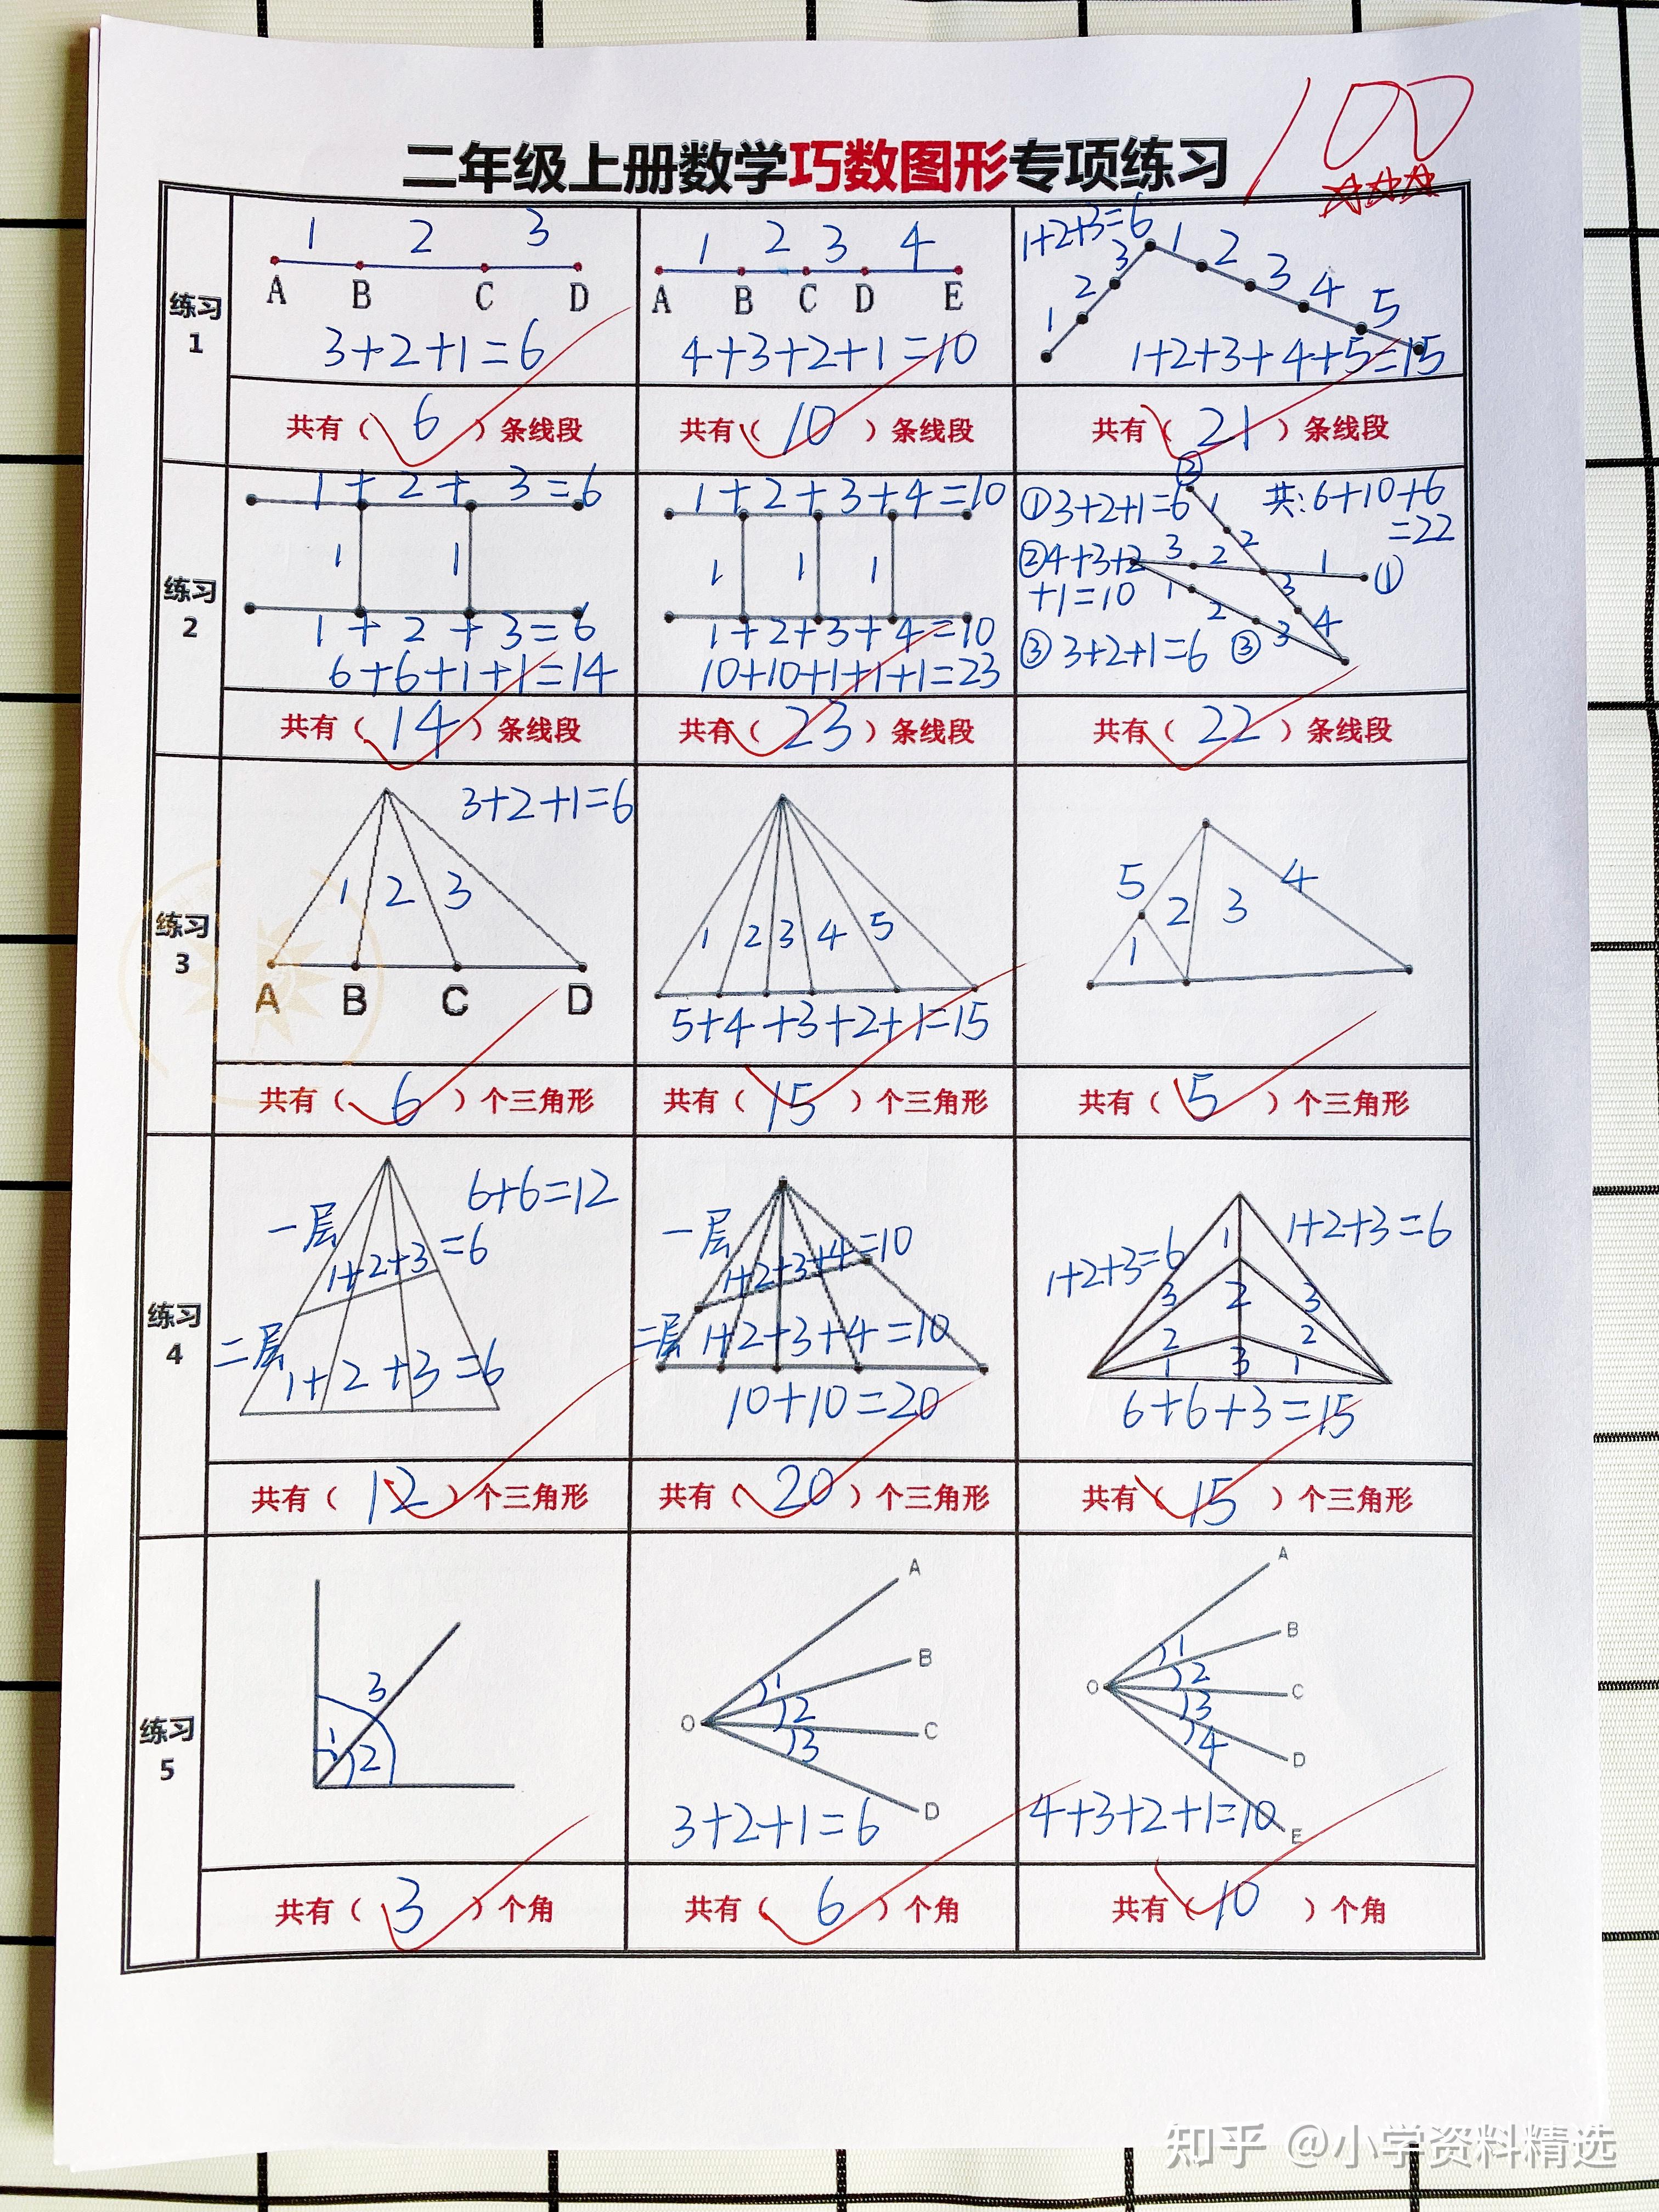 100
二年级上册数学巧数图形专项练习
练习
1
1 2 3
A B C D
3+2+1=6
共有（ 6 ）条线段
1 2 3 4
A B C D E
4+3+2+1=10
共有（ 10 ）条线段
1+2+3=6
1 2 3
1 2 3 4 5
1+2+3+4+5=15
共有（ 21 ）条线段
练习
2
1+2+3=6
1 1
1+2+3=6
6+6+1+1=14
共有（ 14 ）条线段
1+2+3+4=10
1 1 1
1+2+3+4=10
10+10+1+1+1=23
共有（ 23 ）条线段
②
①3+2+1=6 1 共:6+10+6
=22
②4+3+2 3 2 2 1 ①
+1=10 1 2 3 4
③3+2+1=6 ③ 3
共有（ 22 ）条线段
练习
3
3+2+1=6
1 2 3
A B C D
共有（ 6 ）个三角形
1 2 3 4 5
5+4+3+2+1=15
共有（ 15 ）个三角形
5 4
2 3
1
共有（ 5 ）个三角形
练习
4
6+6=12
一层
1+2+3=6
二层
1+2+3=6
共有（ 12 ）个三角形
一层
1+2+3+4=10
二层 1+2+3+4=10
10+10=20
共有（ 20 ）个三角形
1+2+3=6 1 1+2+3=6
3 2 3
2 2
1 3 1
6+6+3=15
共有（ 15 ）个三角形
练习
5
3
1 2
共有（ 3 ）个角
A
B
1
O 2
C
3
D
3+2+1=6
共有（ 6 ）个角
A
B
1
O 2
C
3
4
D
4+3+2+1=10
E
共有（ 10 ）个角
知乎 @小学资料精选